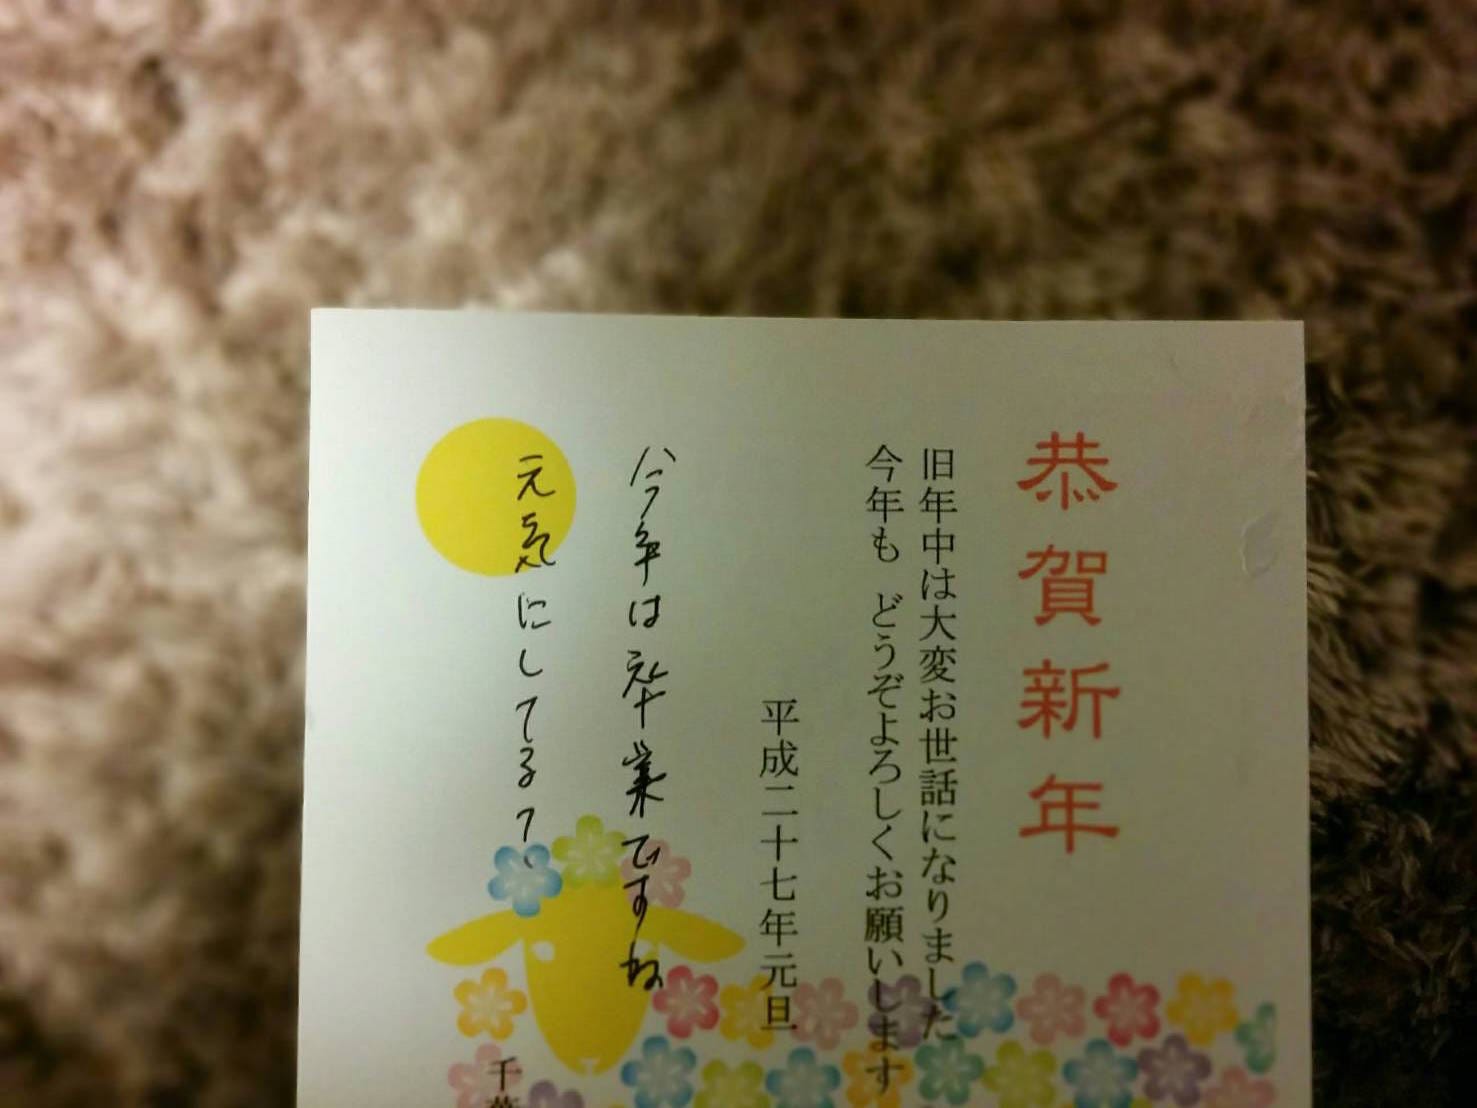 恭賀新年
旧年中は大変お世話になりました
今年も どうぞよろしくお願いします
平成二十七年元旦
今年は卒業ですね
元気にしてる?
千葉